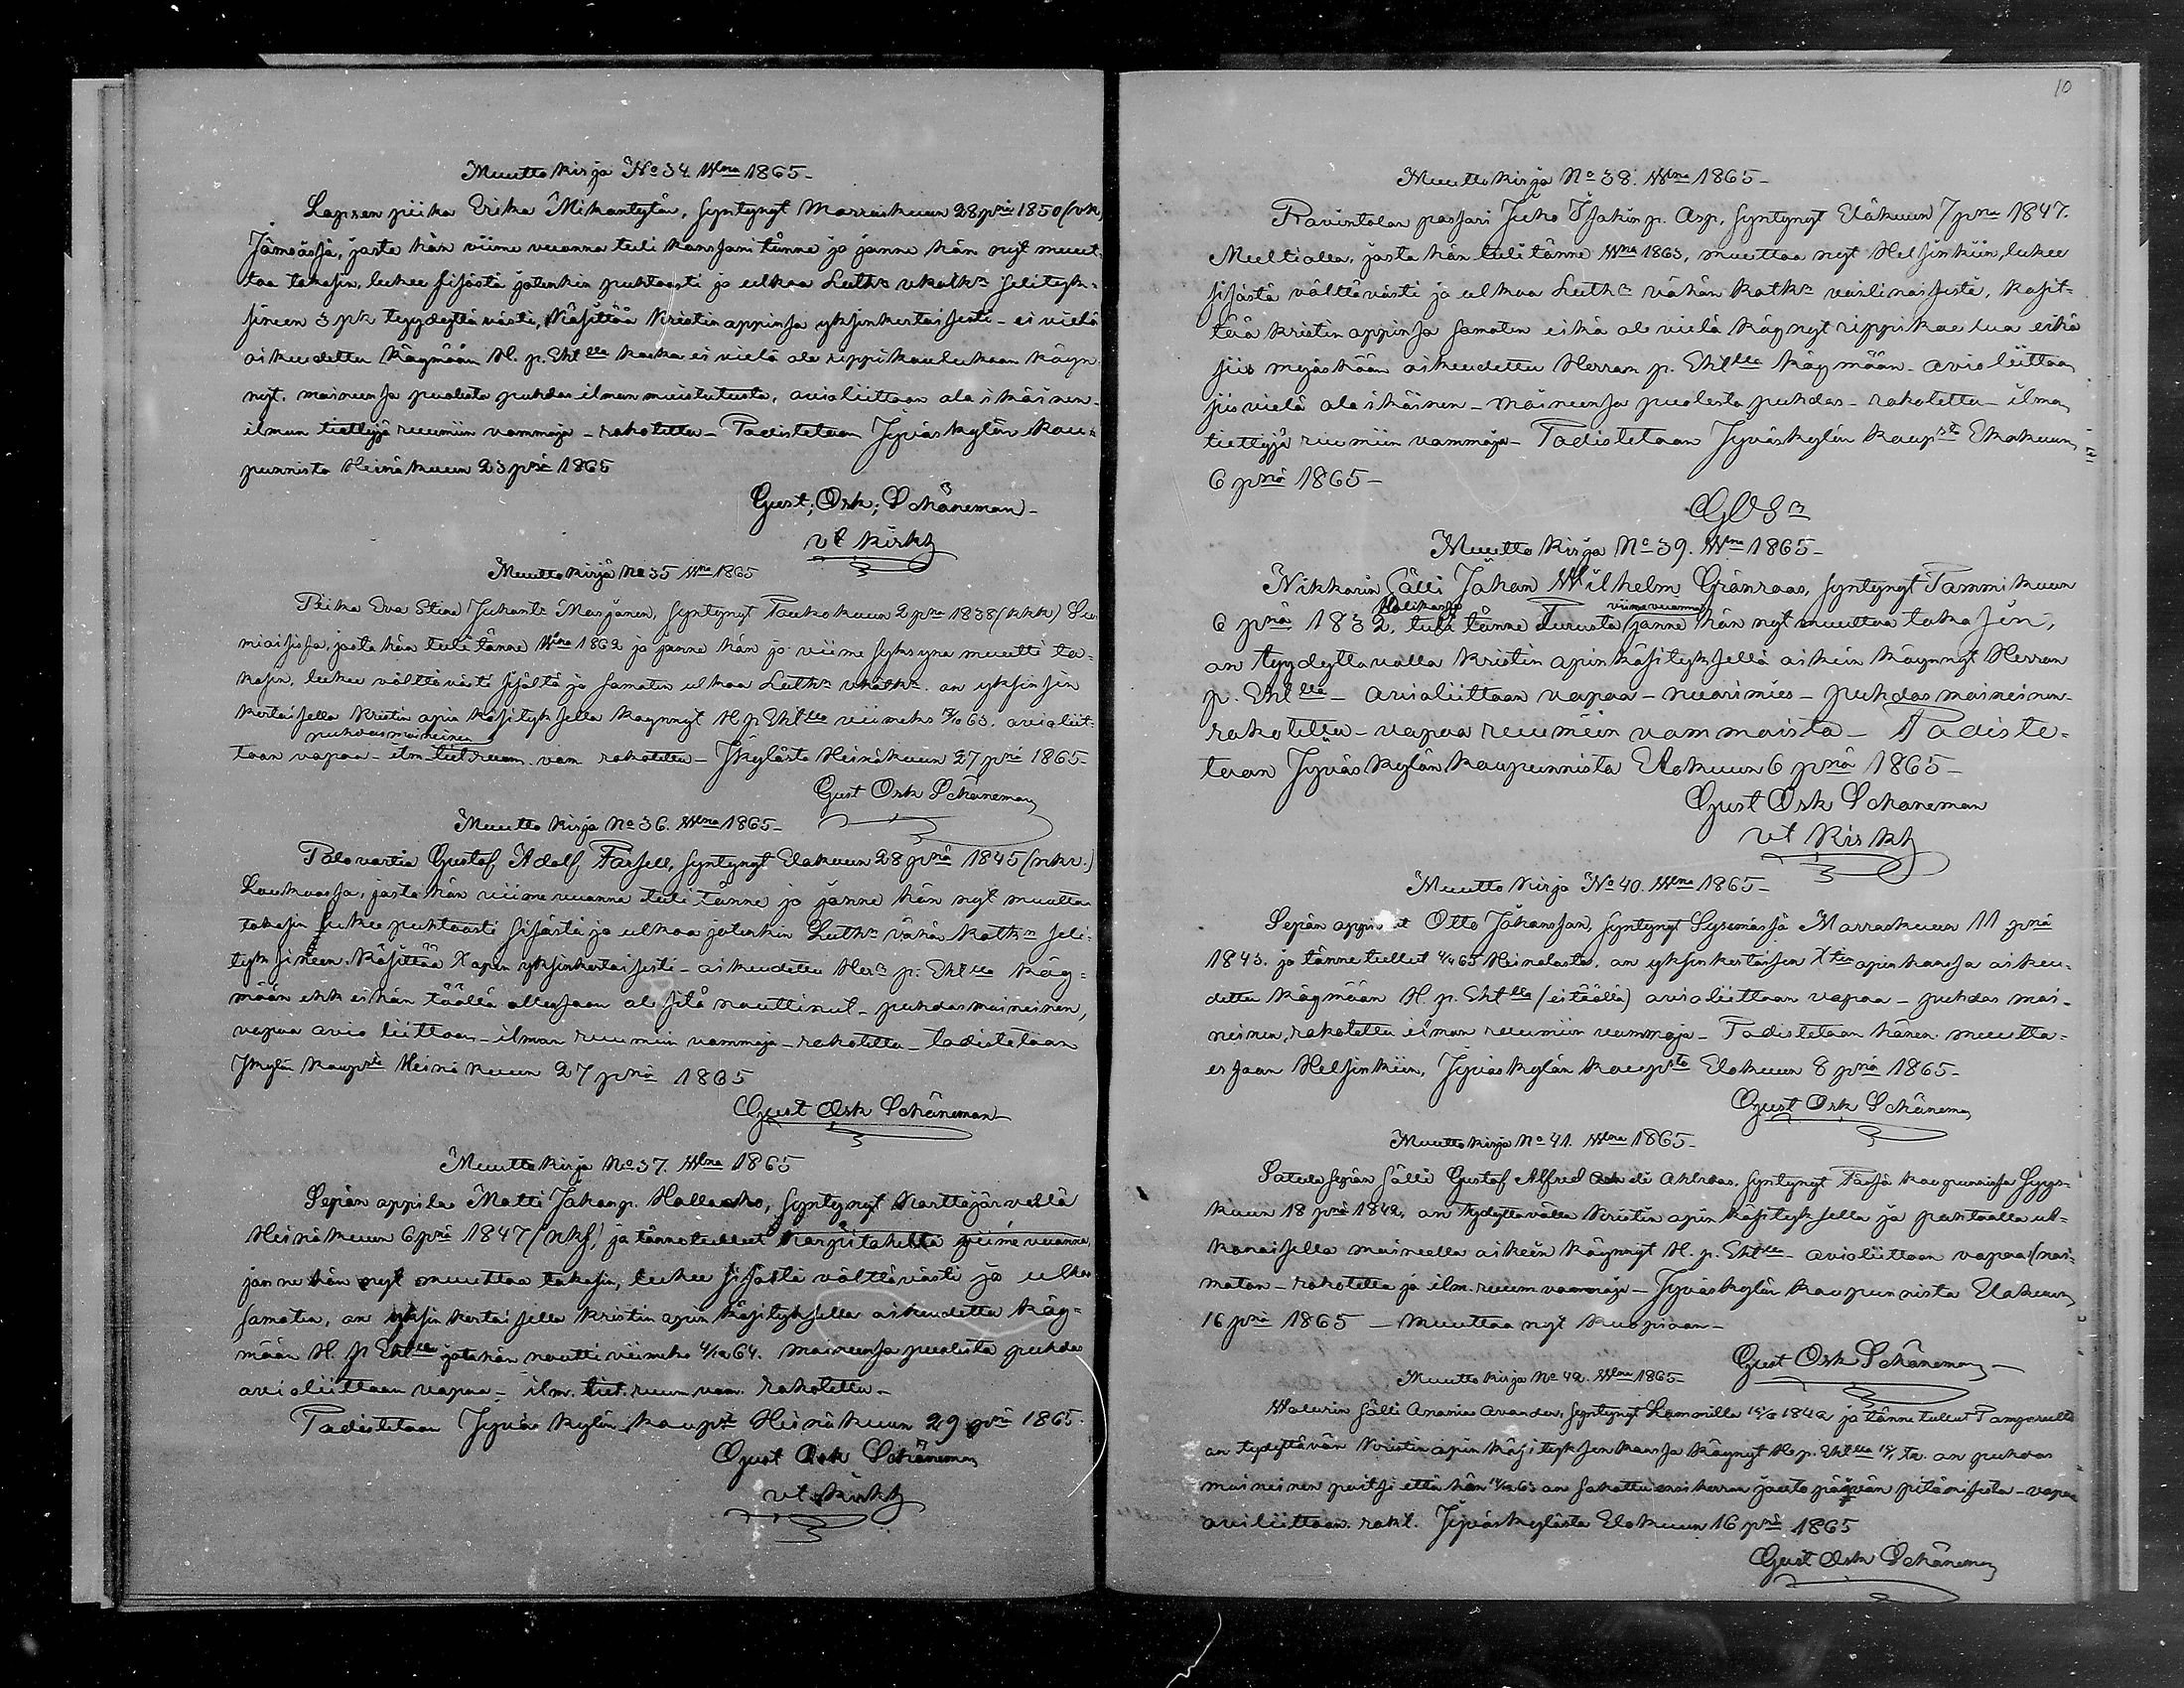 Muuttokirja No 34. Wna 1865.
Lapsen piika Erika Mikontytär, syntynyt Marraskuun 28 pnä 1850 (rk)
Jämsässä, josta hän viime vuonna tuli kanssani tänne ja jonne hän nyt muut-
taa takasin, lukee sisästä jotenkin puhtaasti ja ulkoa Luthn vkatkn selityk-
sineen 3 pk tyydyttävästi, käsittää kristin oppinsa yksinkertaisesti - ei vielä
oikeudettu käymään H. p. Ehtlla koska ei vielä ole rippikoulukaan käyn
nyt. maineensa puolesta puhdas ilman muistutusta, avioliittoon ala ikäinen -
ilman tiettyjä ruumiin vammoja - rokotettu - Todistetaan Jyväskylän kau-
punnista Heinäkuun 23 pnä 1865
Gust; Osk; Schöneman -
vt kirkh
Muuttokirja No 35 Wna 1865
Piika Eva Stina Juhontr Marjanen, syntynyt Toukokuun 2 pnä 1838 (kkk) Su
miaisissa, josta hän tuli tänne Wna 1862 ja jonne hän jo viime syksynä muutti ta-
kasin, lukee välttävästi sisältä ja samaten ulkoa Luthn vkatkn. on yksinsin
kertaisella kristin opin käsityksellä käynnyt H. p Ehtlla viimeks /10 63. avioliit-
puhdasmaineinen
toon vapaa - ilm tiet ruum. vam rokotettu - Jkylästä Heinäkuun 27 pnä 1865 -
Gust Osk Schöneman
Muuttokirja No 36. Wna 1865 -
Palovartia Gustaf Adolf Forsell, syntynyt Elokuun 28 pnä 1845 (nkv.)
Laukaassa, josta hän viime vuonna tuli tänne ja jonne hän nyt muuttaa
takasin lukee puhtaasti sisästä ja ulkoa jotenkin Luthn vähän katkn seli-
tyksineen. Käsittää X opin yksinkertaisesti - oikeudettu Hern p. Ehtlla käy-
mään ehk ei hän täällä ollessaan ole sitä nauttinut - puhdasmaineinen,
vapaa avioliittoon - ilman ruumiin vammoja - rokotettu - todistetaan
Jkylän kaupsta Heinäkuun 27 pnä 1865
Gust Osk Schöneman
Muuttokirja No 37. Wna 1865
Sepän oppilas Matti Johanp. Hallaaho, syntynyt Karttajärvellä
Heinäkuun 6 pnä 1847 (nkf) ja tänne tullut Karpilahelta viime vuonna,
jonne hän nyt muuttaa takasin, lukee sisästä välttävästi ja ulkoa
samaten, on yksinkertaisella kristin opin käsityksellä oikeudettu käy-
mään H. p Ehtlla jota hän nautti viimeks 4/12 64. maineensa puolesta puhdas
avioliittoon vapaa - ilm. tiet. ruum vam. rokotettu -
Todistetaan Jyväskylän kaupst Heinäkuun 29 pnä 1865.
Gust Osk Schöneman
vt kirkh
10
Muuttokirja No 38. Wna 1865 -
Ravintolan passari Juho Isakinp. Asp, syntynyt Elokuun 7 pnä 1847.
Multialla, josta hän tuli tänne Wna 1863, muuttaa nyt Helsinkiin, lukee
sisästä välttävästi ja ulkoa Luthn vähän katkn vaillinaisesti, käsit-
tää kristin oppinsa samaten eikä ole vielä käynyt rippikoulua eikä
siis myöskään oikeudettu Herran p. Ehtlla käymään. avioliittoon
siis vielä ala ikäinen - maineensa puolesta puhdas - rokotettu - ilman
tiettyjä ruumiin vammoja - Todistetaan Jyväskylän kaupst Elokuun
6 pnä 1865 -
GOSn
Muuttokirja No 39. Wna 1865 -
Nikkarin Sälli Johan Wilhelm Grönroos, syntynyt Tammikuun
Halikossa viime vuonna
6 pnä 1832, tuli tänne Turusta jonne hän nyt muuttaa takasin,
on tyydyttävällä kristin opin käsityksellä oikein käynnyt Herran
p. Ehtlla - avioliittoon vapaa - nuorimies - puhdas maineinen -
rokotettu - vapaa ruumiin vammoista - Todiste-
taan Jyväskylän kaupunnista Elokuun 6 pnä 1865 -
Gust Osk Schöneman
vt Kirkh
Muuttokirja No 40. Wna 1865 -
Sepän Otto Johansson, syntynyt Sysmässä Marraskuun 11 pnä
1843. ja tänne tullut 4/4 65 Heinolasta. on yksinkertaisen Xtin opin kanssa oikeu-
dettu käymään H. p. Ehtlla (ei täällä) avioliittoon vapaa - puhdas mai-
neinen, rokotettu ilman ruumiin vammoja - Todistetaan hänen muutta-
essaan Helsinkiin, Jyväskylän kaupsta Elokuun 8 pnä 1865 -
Gust Osk Schöneman
Muuttokirja No 41. Wna 1865 -
Satulasepän Sälli Gustaf Alfred Ahlroos, syntynyt kaupunnissa Syys-
kuun 18 pnä 1842, on tydyttävällä kristin opin käsityksellä ja puhtaalla ul-
konaisella maineella oikein käynnyt H. p. Ehtlla - avioliittoon vapaa (nai-
maton - rokotettu ja ilm. ruum vammoja - Jyväskylän kaupunnista Elokuun
16 pnä 1865 - muuttaa nyt Kuopioon -
Gust Osk Schöneman -
Muuttokirja No 42. Wna 1865 -
Sälli Ananias Avander, syntynyt Lammilla 1842 ja tänne tullut Tampereelta
on tydyttävän kristin opin käsityksen kanssa käynyt H. p. Ehtlla on puhdas
maineinen paitsi että hän on sakotettu ensikerran pitämisestä - vapaa
avioliittoon. rokt. Jyväskylästä Elokuun 16 pnä 1865
Gust Osk Schöneman